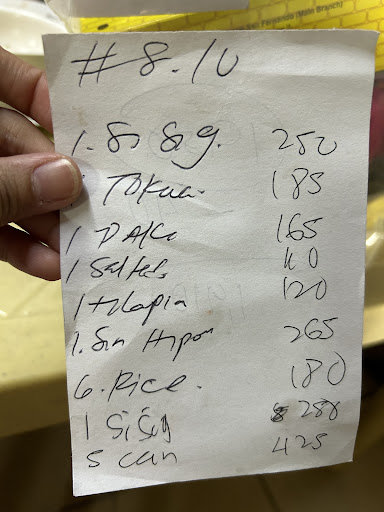 San Fernando (Main Branch)
#8.10
1. Si Sig. 250
1 Tokwa. 185
1 165
1 110
1 tilapia 120
1. Sin Hipon 265
6. Rice. 180
1 Sisig 288
5 can 425